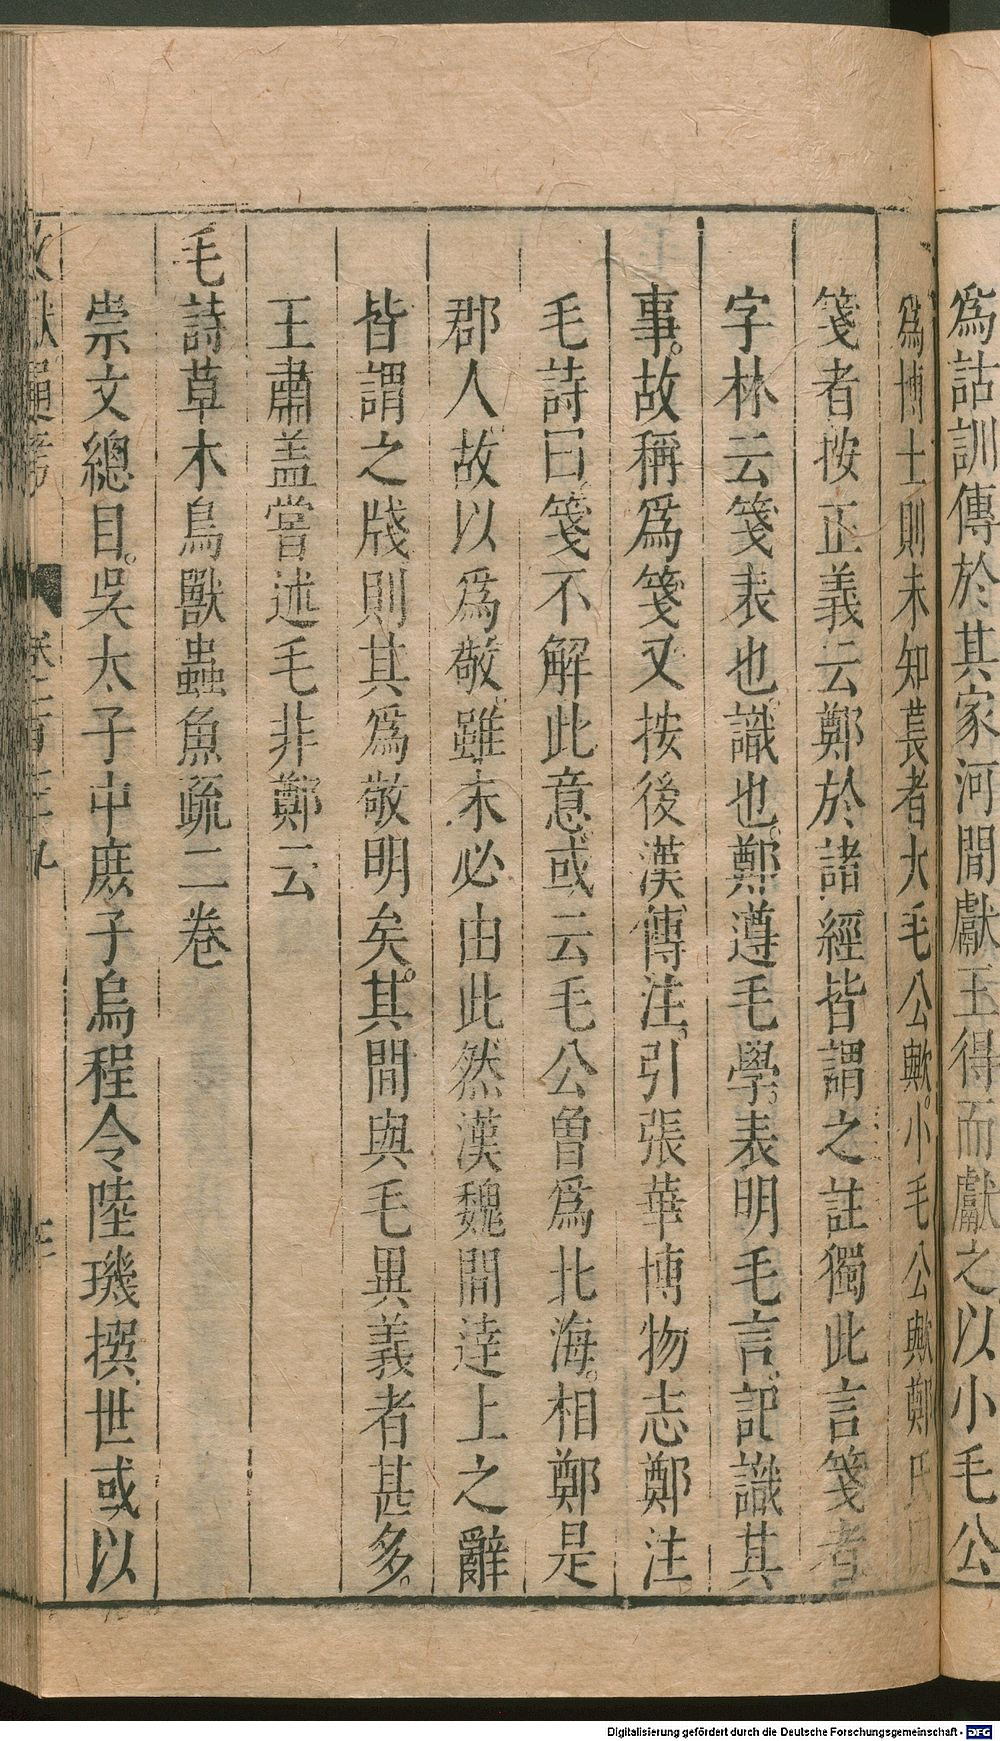 爲詁訓傳於其家河間獻王得而獻之以小毛公
爲博士則未知萇者大毛公歟小毛公歟鄭氏
箋者按正義云鄭於諸經皆謂之註獨此言箋者
字林云箋表也識也鄭遵毛學表明毛言記識其
事故稱爲箋又按後漢傳注引張華博物志鄭注
毛詩曰箋不解此意或云毛公曾爲北海相鄭是
郡人故以爲敬雖未必由此然漢魏間達上之辭
皆謂之牋則其爲敬明矣其間與毛異義者甚多
王肅盖嘗述毛非鄭云
毛詩草木鳥獸蟲魚疏二卷
崇文總目吳太子中庶子烏程令陸璣撰世或以
Digitalisierung gefördert durch die Deutsche Forschungsgemeinschaft - DFG